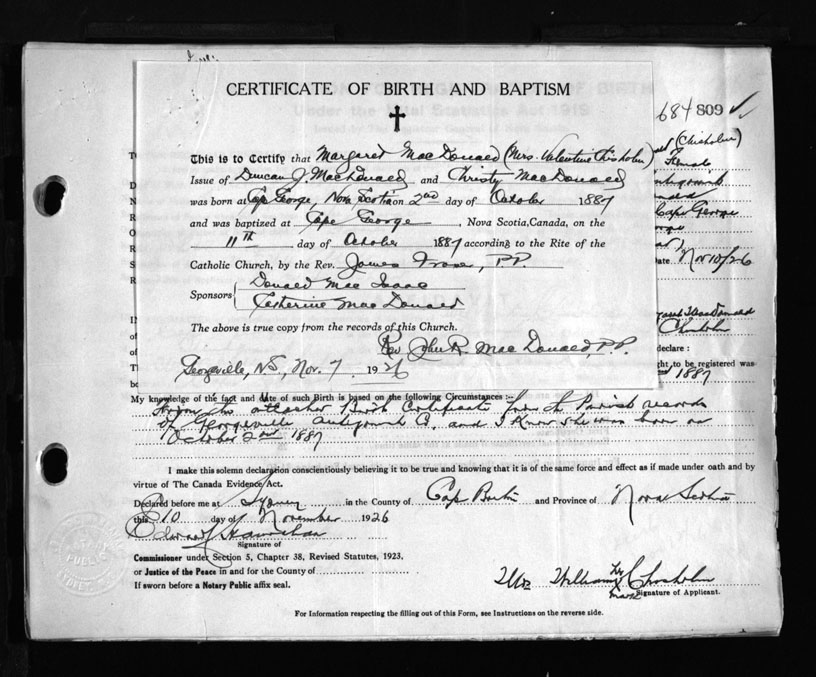 CERTIFICATE OF BIRTH AND BAPTISM
684 809
This is to Certify that Margaret MacDonald (Mrs. Valentine Chisholm)
Issue of Duncan J. MacDonald and Christy MacDonald
was born at Cape George, Nova Scotia on 2nd day of October 1887
and was baptized at Cape George, Nova Scotia, Canada, on the
11th day of October 1887 according to the Rite of the
Catholic Church, by the Rev. James Fraser, P.P.
Sponsors Donald Mac Isaac
Catherine Mac Donald
The above is true copy from the records of this Church.
Rev. John R. MacDonald P.P.
Georgeville, N.S., Nov. 7 1926
(Chisholm)
Female
Cape George
Date Nov 10/26
Chisholm
declare :
ght, to be registered was
1887
My knowledge of the fact and date of such Birth is based on the following Circumstances :—
From the attached Birth Certificate from the Parish records
of Georgeville Antigonish Co. and I know she was born on
October 2nd 1887
I make this solemn declaration conscientiously believing it to be true and knowing that it is of the same force and effect as if made under oath and by
virtue of The Canada Evidence Act.
Declared before me at Sydney in the County of Cape Breton and Province of Nova Scotia
this 10 day of November 1926
Signature of
Commissioner under Section 5, Chapter 38, Revised Statutes, 1923,
or Justice of the Peace in and for the County of
If sworn before a Notary Public affix seal.
Mrs William Chisholm
her
mark
Signature of Applicant.
For Information respecting the filling out of this Form, see Instructions on the reverse side.